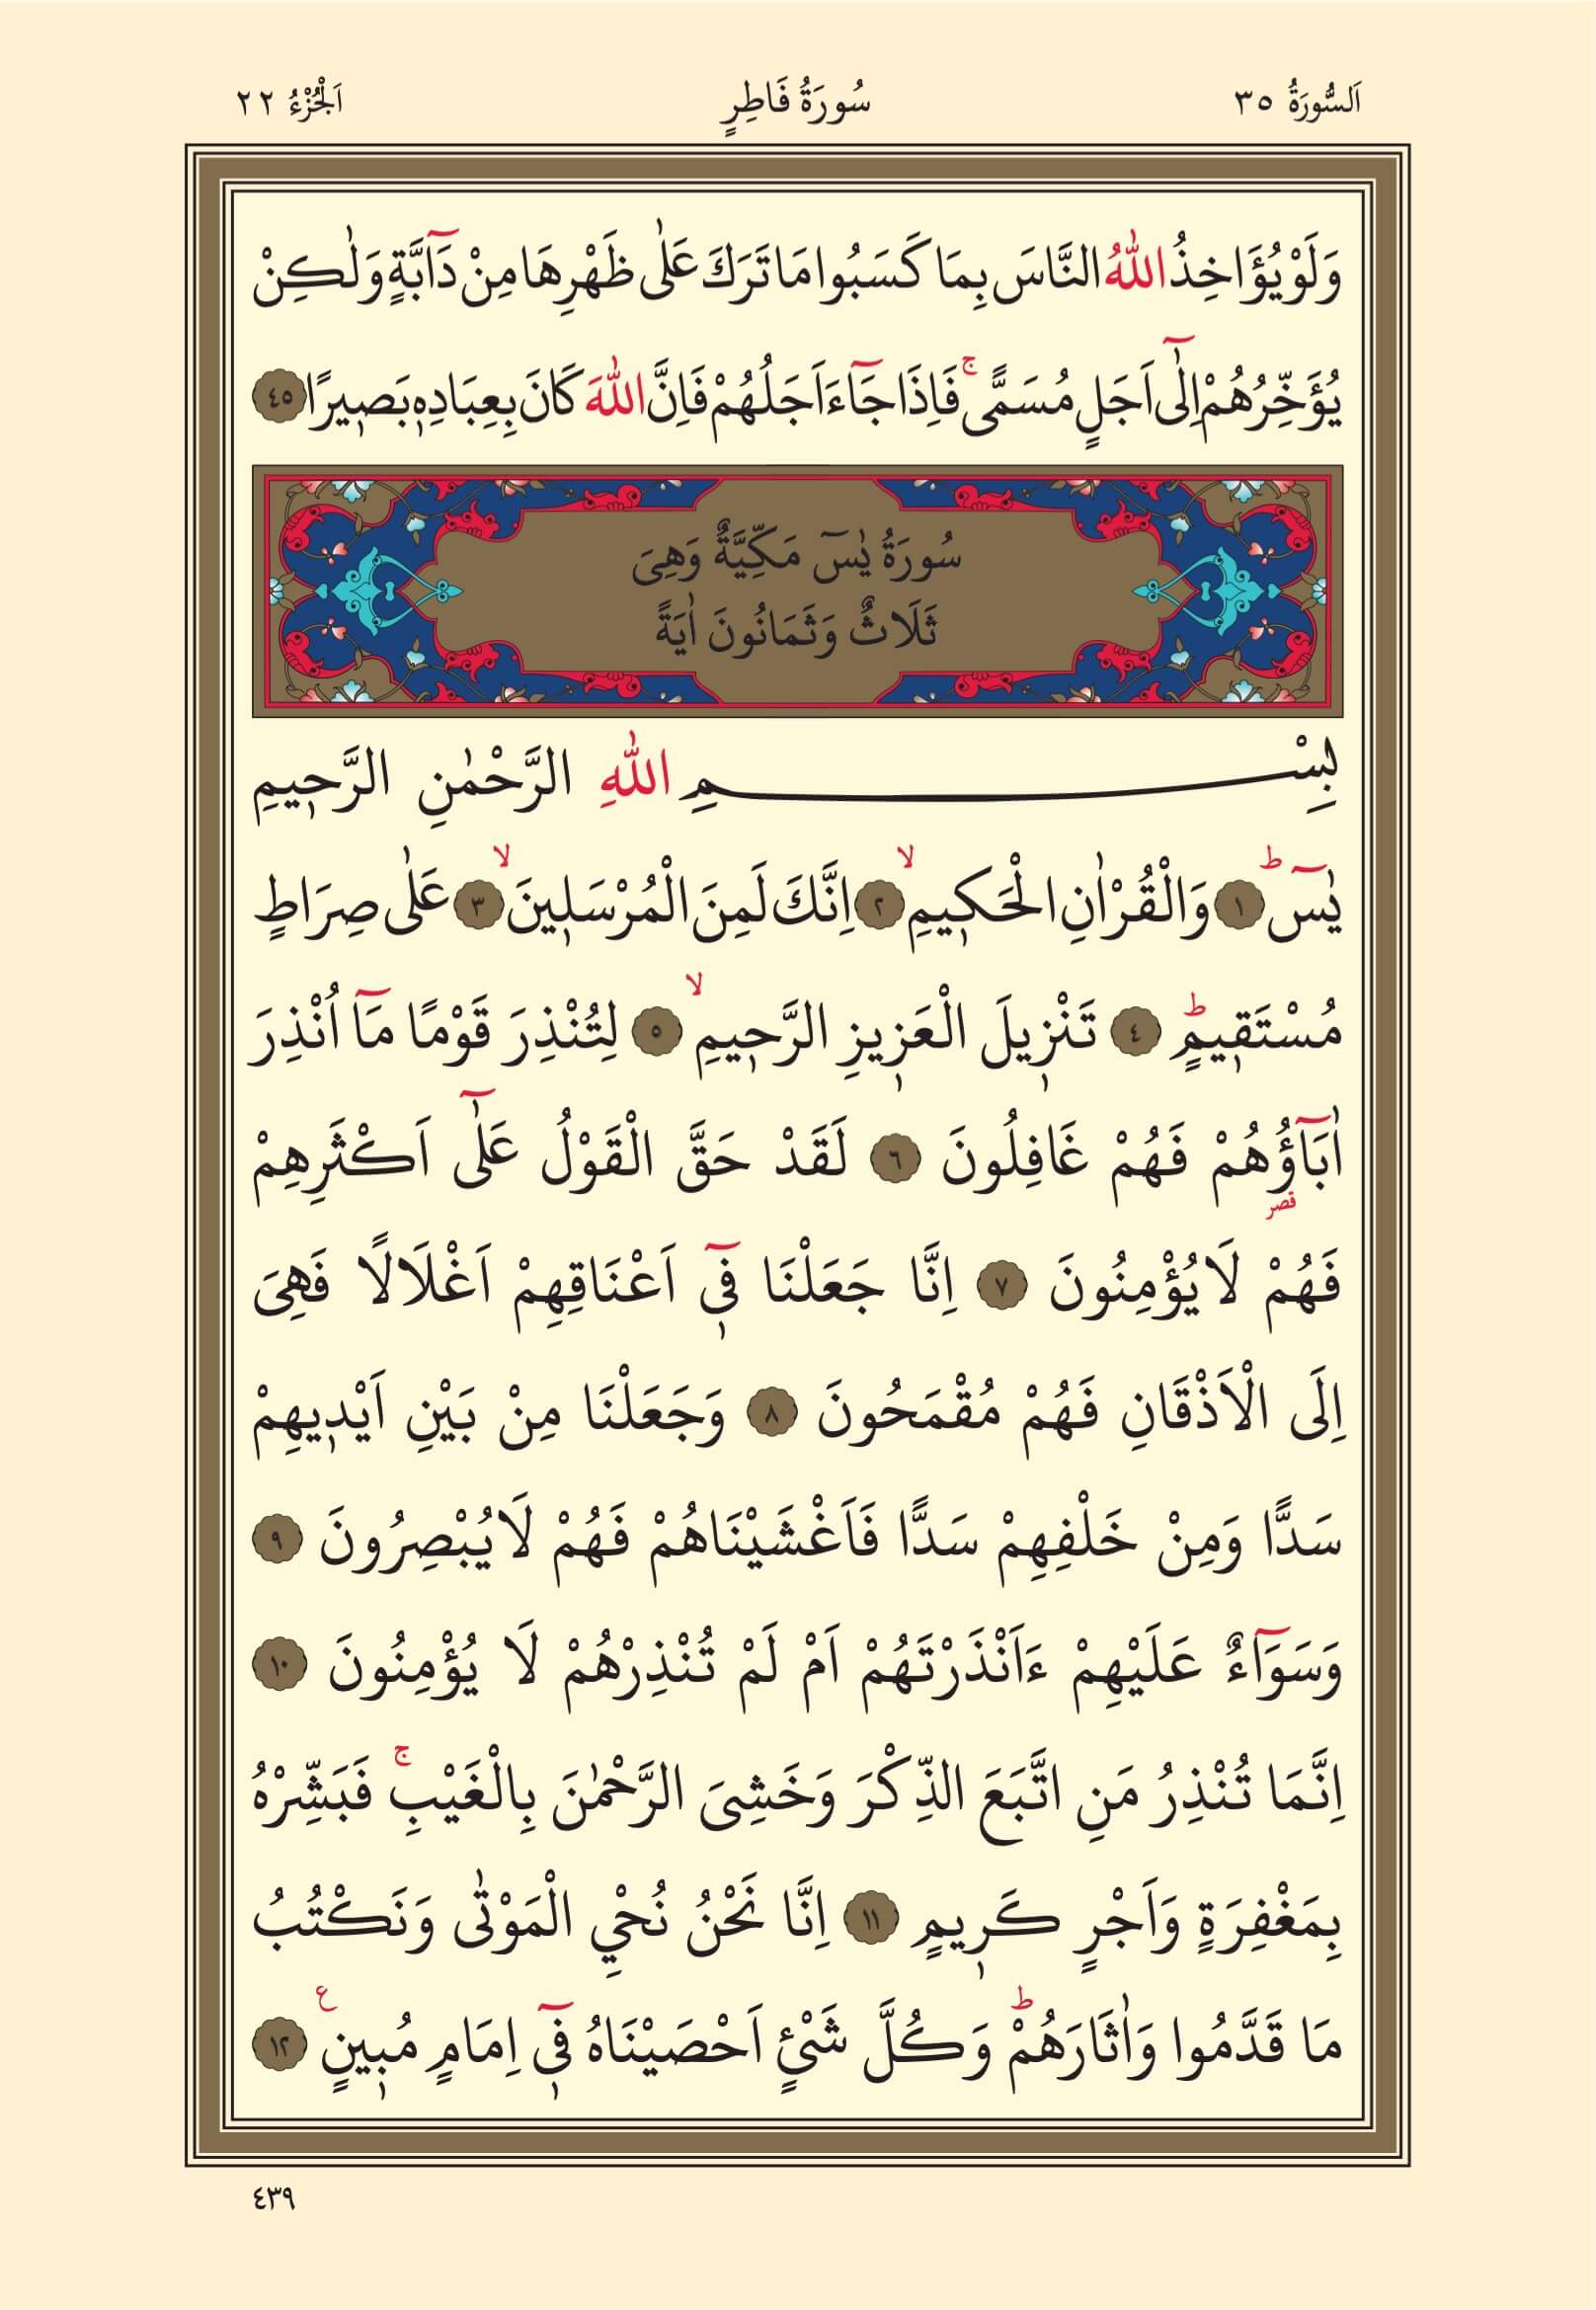 اَلسُّورَةُ ٣٥ سُورَةُ فَاطِرٍ اَلْجُزْءُ ٢٢
وَلَوْ يُؤَاخِذُ اللّٰهُ النَّاسَ بِمَا كَسَبُوا مَا تَرَكَ عَلٰى ظَهْرِهَا مِنْ دَآبَّةٍ وَلٰكِنْ
يُؤَخِّرُهُمْ اِلٰٓى اَجَلٍ مُسَمًّىۚ فَاِذَا جَآءَ اَجَلُهُمْ فَاِنَّ اللّٰهَ كَانَ بِعِبَادِه۪ بَص۪يرًا ٤٥
سُورَةُ يٰسٓ مَكِّيَّةٌ وَهِىَ
ثَلَاثٌ وَثَمَانُونَ اٰيَةً
بِسْمِ اللّٰهِ الرَّحْمٰنِ الرَّح۪يمِ
يٰسٓۜ ١ وَالْقُرْاٰنِ الْحَك۪يمِۙ ٢ اِنَّكَ لَمِنَ الْمُرْسَل۪ينَۙ ٣ عَلٰى صِرَاطٍ
مُسْتَق۪يمٍۜ ٤ تَنْز۪يلَ الْعَز۪يزِ الرَّح۪يمِۙ ٥ لِتُنْذِرَ قَوْمًا مَآ اُنْذِرَ
اٰبَآؤُ۬هُمْ فَهُمْ غَافِلُونَ ٦ لَقَدْ حَقَّ الْقَوْلُ عَلٰٓى اَكْثَرِهِمْ
قصر
فَهُمْ لَا يُؤْمِنُونَ ٧ اِنَّا جَعَلْنَا ف۪ٓى اَعْنَاقِهِمْ اَغْلَالًا فَهِىَ
اِلَى الْاَذْقَانِ فَهُمْ مُقْمَحُونَ ٨ وَجَعَلْنَا مِنْ بَيْنِ اَيْد۪يهِمْ
سَدًّا وَمِنْ خَلْفِهِمْ سَدًّا فَاَغْشَيْنَاهُمْ فَهُمْ لَا يُبْصِرُونَ ٩
وَسَوَآءٌ عَلَيْهِمْ ءَاَنْذَرْتَهُمْ اَمْ لَمْ تُنْذِرْهُمْ لَا يُؤْمِنُونَ ١٠
اِنَّمَا تُنْذِرُ مَنِ اتَّبَعَ الذِّكْرَ وَخَشِىَ الرَّحْمٰنَ بِالْغَيْبِۚ فَبَشِّرْهُ
بِمَغْفِرَةٍ وَاَجْرٍ كَر۪يمٍ ١١ اِنَّا نَحْنُ نُحْيِ الْمَوْتٰى وَنَكْتُبُ
مَا قَدَّمُوا وَاٰثَارَهُمْۜ وَكُلَّ شَىْءٍ اَحْصَيْنَاهُ ف۪ٓى اِمَامٍ مُب۪ينٍ ع ١٢
٤٣٩